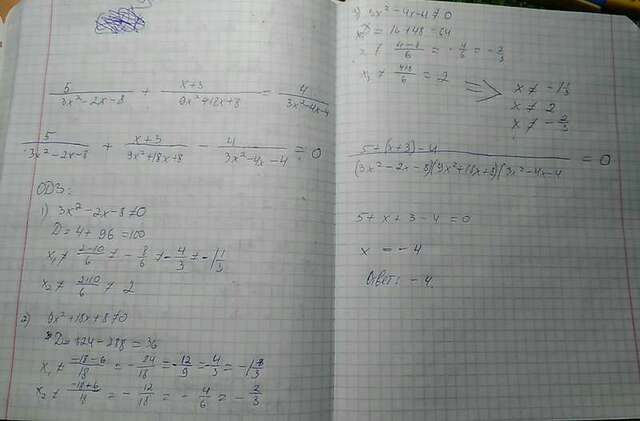 5/(3x²-2x-8) + (x+3)/(9x²+18x+8) = 4/(3x²-4x-4)
5/(3x²-2x-8) + (x+3)/(9x²+18x+8) - 4/(3x²-4x-4) = 0
ОДЗ:
1) 3x²-2x-8≠0
D=4+96=100
x₁ ≠ (2-10)/6 ≠ -8/6 ≠ -4/3 ≠ -1 1/3
x₂ ≠ (2+10)/6 ≠ 2
2) 9x²+18x+8≠0
D=324-288=36
x₁ ≠ (-18-6)/18 = -24/18 = -12/9 = -4/3 = -1 1/3
x₂ ≠ (-18+6)/18 = -12/18 = -4/6 = -2/3
3) 3x²-4x-4≠0
D=16+48=64
(4-8)/6 = -4/6 = -2/3
x₁ ≠ (4+8)/6 = 2
x ≠ -1 1/3
x ≠ 2
x ≠ -2/3
(5+(x+3)-4)/((3x²-2x-8)(9x²+18x+8)(3x²-4x-4) = 0
5+x+3-4=0
x = -4
Ответ: -4.